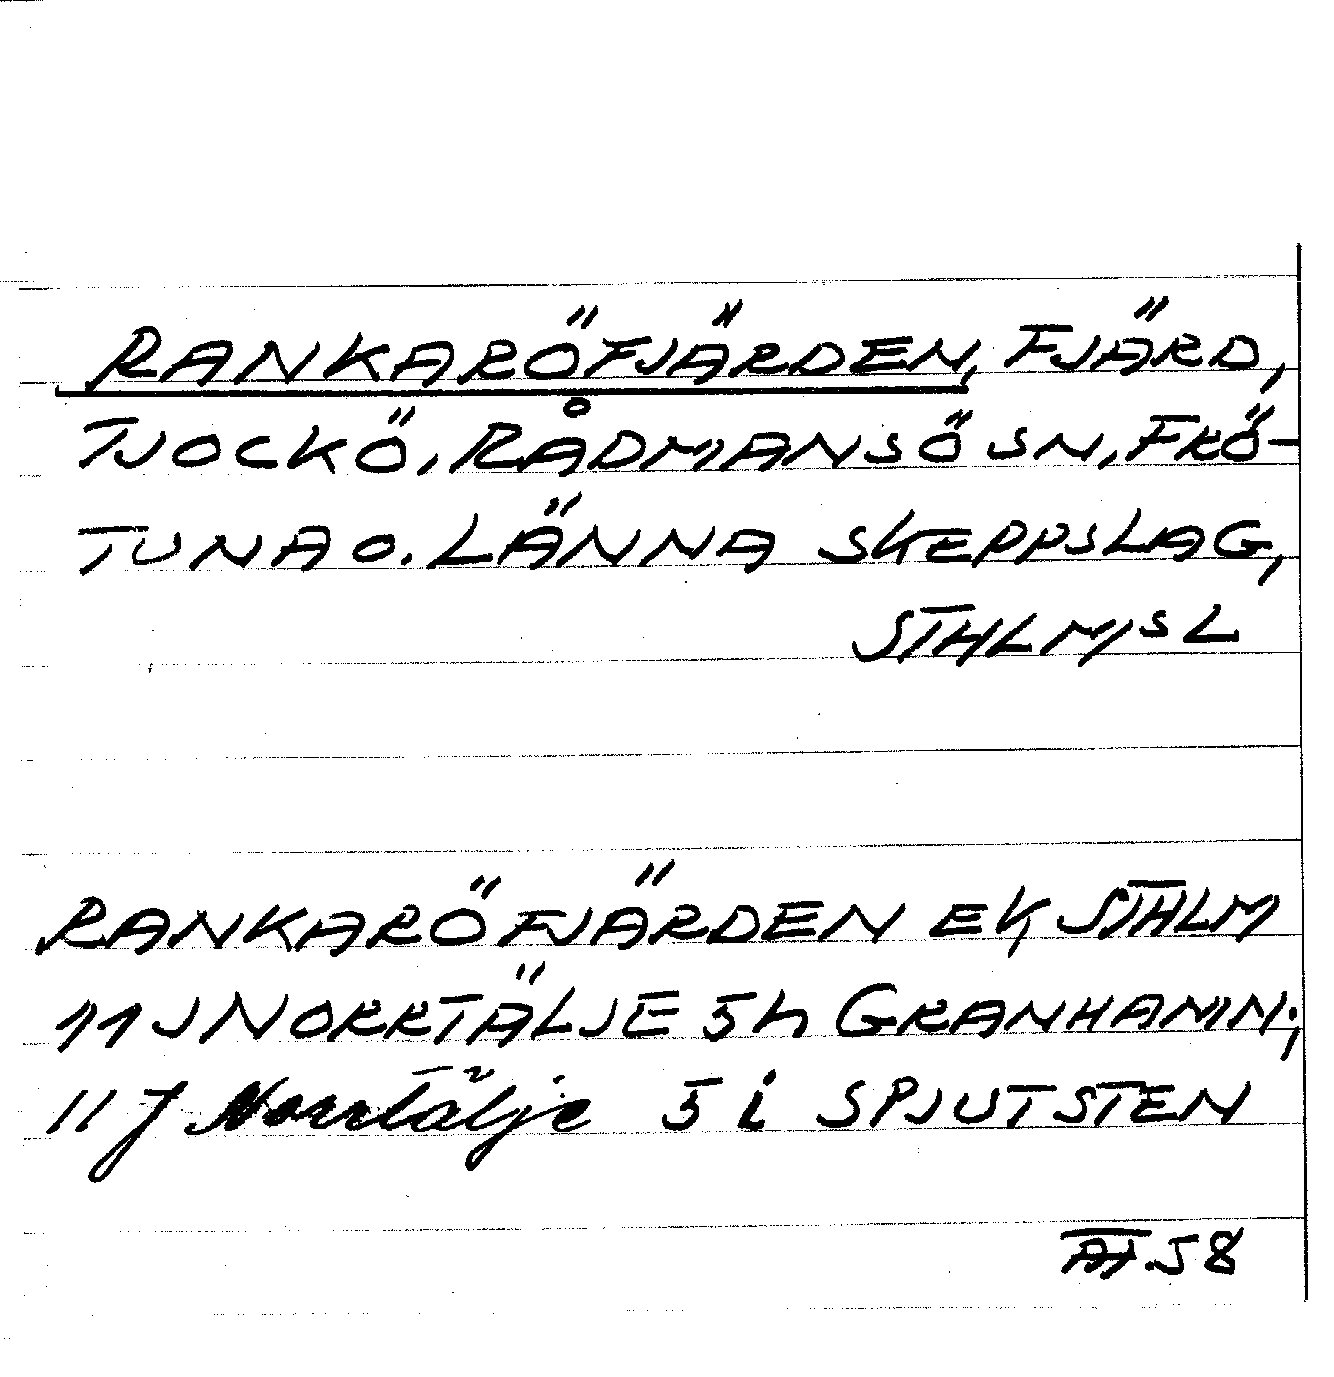 RANKARÖFJÄRDEN, FJÄRD,
TJOCKÖ, RÅDMANSÖ SN, FRÖ-
TUNA O. LÄNNA SKEPPSLAG,
STHLMS L
RANKARÖFJÄRDEN EK STHLM
11 J NORRTÄLJE 5h GRANHAMN;
11 J Norrtälje 5 i SPJUTSTEN
AT.58